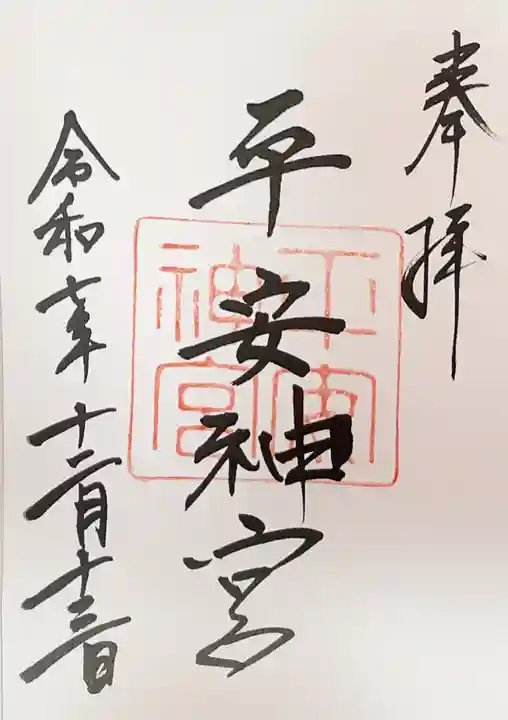 奉拝
平安神宮
平安神宮
令和年十二月十三日